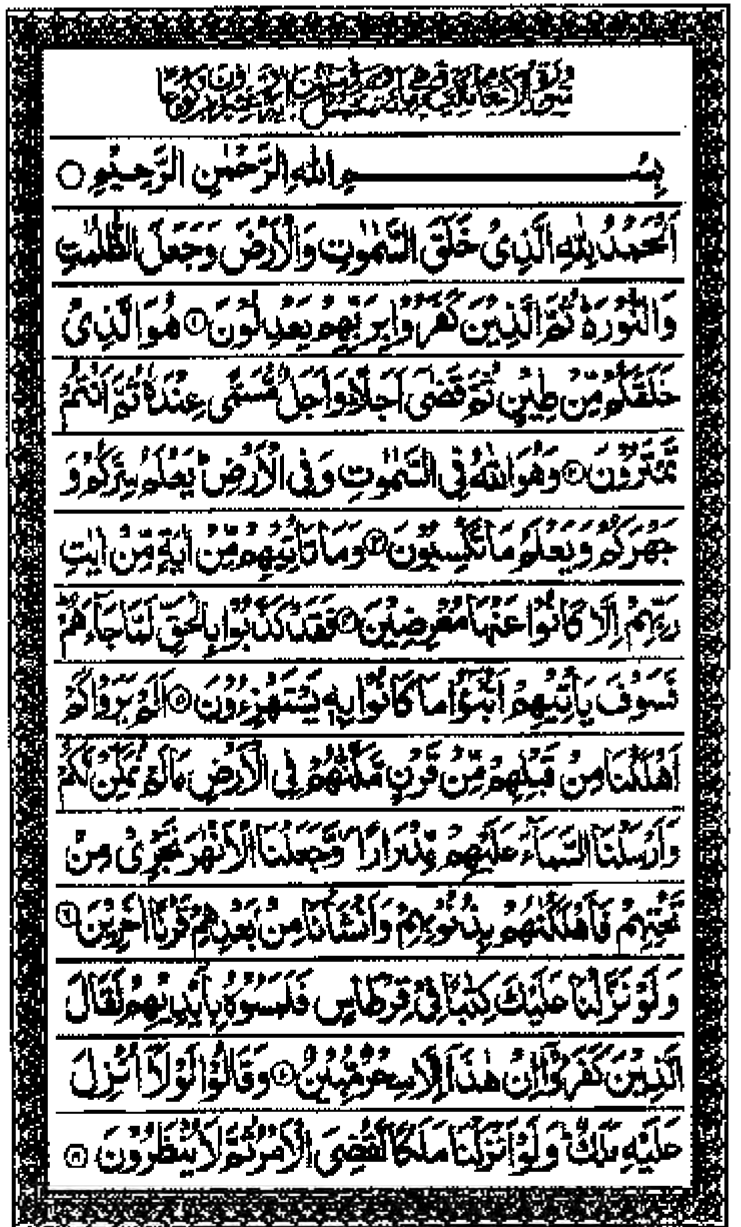 سورة الانعام
بِسْمِ اللهِ الرَّحْمٰنِ الرَّحِيْمِ ○
اَلْحَمْدُ لِلّٰهِ الَّذِىْ خَلَقَ السَّمٰوٰتِ وَالْاَرْضَ وَجَعَلَ الظُّلُمٰتِ
وَالنُّوْرَ ۬ؕ ثُمَّ الَّذِيْنَ كَفَرُوْا بِرَبِّهِمْ يَعْدِلُوْنَ ۝۱ هُوَ الَّذِىْ
خَلَقَكُمْ مِّنْ طِيْنٍ ثُمَّ قَضٰۤى اَجَلًا ؕ وَاَجَلٌ مُّسَمًّى عِنْدَهٗ ثُمَّ اَنْتُمْ
تَمْتَرُوْنَ ۝۲ وَهُوَ اللهُ فِى السَّمٰوٰتِ وَفِى الْاَرْضِ ؕ يَعْلَمُ سِرَّكُمْ وَ
جَهْرَكُمْ وَيَعْلَمُ مَا تَكْسِبُوْنَ ۝۳ وَمَا تَاْتِيْهِمْ مِّنْ اٰيَةٍ مِّنْ اٰيٰتِ
رَبِّهِمْ اِلَّا كَانُوْا عَنْهَا مُعْرِضِيْنَ ۝۴ فَقَدْ كَذَّبُوْا بِالْحَقِّ لَمَّا جَآءَهُمْ ؕ
فَسَوْفَ يَاْتِيْهِمْ اَنْۢبٰٓؤُا مَا كَانُوْا بِهٖ يَسْتَهْزِءُوْنَ ۝۵ اَلَمْ يَرَوْا كَمْ
اَهْلَكْنَا مِنْ قَبْلِهِمْ مِّنْ قَرْنٍ مَّكَّنّٰهُمْ فِى الْاَرْضِ مَا لَمْ نُمَكِّنْ لَّكُمْ
وَاَرْسَلْنَا السَّمَآءَ عَلَيْهِمْ مِّدْرَارًا ۪ وَّجَعَلْنَا الْاَنْهٰرَ تَجْرِىْ مِنْ
تَحْتِهِمْ فَاَهْلَكْنٰهُمْ بِذُنُوْبِهِمْ وَاَنْشَاْنَا مِنْۢ بَعْدِهِمْ قَرْنًا اٰخَرِيْنَ ۝۶
وَلَوْ نَزَّلْنَا عَلَيْكَ كِتٰبًا فِىْ قِرْطَاسٍ فَلَمَسُوْهُ بِاَيْدِيْهِمْ لَقَالَ
الَّذِيْنَ كَفَرُوْۤا اِنْ هٰذَاۤ اِلَّا سِحْرٌ مُّبِيْنٌ ۝۷ وَقَالُوْا لَوْلَاۤ اُنْزِلَ
عَلَيْهِ مَلَكٌ ؕ وَلَوْ اَنْزَلْنَا مَلَكًا لَّقُضِىَ الْاَمْرُ ثُمَّ لَا يُنْظَرُوْنَ ۝۸